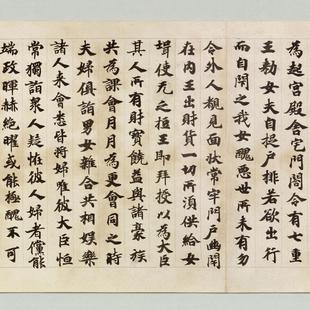 為起宮殿舍宅門閤令有七重
王勅女夫自捉戶排若欲出行
而自閉之我女醜惡世所未有勿
令外人覩見面狀常牢門戶幽閉
在內王出財貨一切所須供給女
聟使无乏短王即拜授以為大臣
其人所有財寶饒益與諸豪族
共為讌會月月為更會同之時
夫婦俱詣男女雜合共相娛樂
諸人來會悉皆將婦唯彼大臣恒
常獨詣衆人疑恠彼人婦者儻能
端政暉赫絕曜或能極醜不可